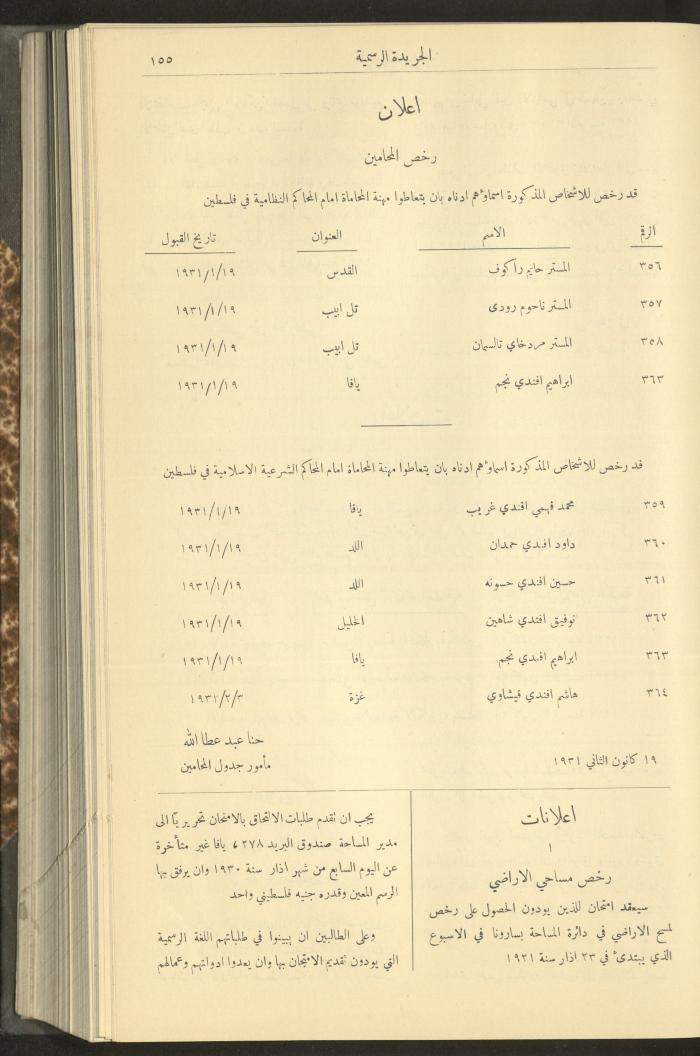 الجريدة الرسمية ١٥٥
اعلان
رخص المحامين
قد رخص للاشخاص المذكورة اسماؤهم ادناه بان يتعاطوا مهنة المحاماة امام المحاكم النظامية في فلسطين
الرقم الاسم العنوان تاريخ القبول
٣٥٦ المستر حايم راكوف القدس ١٩٣١/١/١٩
٣٥٧ المستر ناحوم رودى تل ابيب ١٩٣١/١/١٩
٣٥٨ المستر مردخاي تالسمان تل ابيب ١٩٣١/١/١٩
٣٦٣ ابراهيم افندي نجم يافا ١٩٣١/١/١٩
قد رخص للاشخاص المذكورة اسماؤهم ادناه بان يتعاطوا مهنة المحاماة امام المحاكم الشرعية الاسلامية في فلسطين
٣٥٩ محمد فهمي افندي غريب يافا ١٩٣١/١/١٩
٣٦٠ داود افندي حمدان اللد ١٩٣١/١/١٩
٣٦١ حسين افندي حسونه اللد ١٩٣١/١/١٩
٣٦٢ توفيق افندي شاهين الخليل ١٩٣١/١/١٩
٣٦٣ ابراهيم افندي نجم يافا ١٩٣١/١/١٩
٣٦٤ هاشم افندي فيشاوي غزة ١٩٣١/٢/٣
حنا عبد عطا الله
١٩ كانون الثاني ١٩٣١ مأمور جدول المحامين
اعلانات
١
رخص مساحي الاراضي
سيعقد امتحان للذين يودون الحصول على رخص
لمسح الاراضي في دائرة المساحة بسارونا في الاسبوع
الذي يبتدئ في ٢٣ اذار سنة ١٩٢١
يجب ان تقدم طلبات الالتحاق بالامتحان تحريريًا الى
مدير المساحة صندوق البريد ٢٧٨، يافا غير متأخرة
عن اليوم السابع من شهر اذار سنة ١٩٣٠ وان يرفق بها
الرسم المعين وقدره جنيه فلسطيني واحد
وعلى الطالبين ان يبينوا في طلباتهم اللغة الرسمية
التي يودون تقديم الامتحان بها وان يعدوا ادواتهم وعمالهم